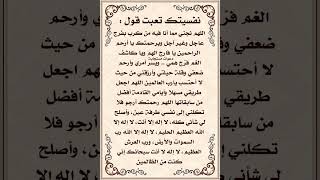 نفسيتك تعبت قول :
اللهم نجني مما أنا فيه من كرب بفرج
عاجل وغير آجل وبرحمتك يا أرحم
الراحمين يا فارج الهم ويا كاشف
دعوات مستجابة
الغم فرج همي .. ويسر أمري وأرحم
ضعفي وقلة حيلتي وأرزقني من حيث
لا أحتسب يارب العالمين، اللهم اجعل
طريقي سهلاً وأيامي القادمة أفضل
من سابقاتها اللهم رحمتك أرجو فلا
تكلني إلى نفسي طرفة عين، وأصلح
لي شأني كله، لا إله إلا أنت، لا إله إلا
الله العظيم الحليم، لا إله إلا الله رب
السموات والأرض، ورب العرش
العظيم، لا إله إلا أنت سبحانك إني
كنت من الظالمين